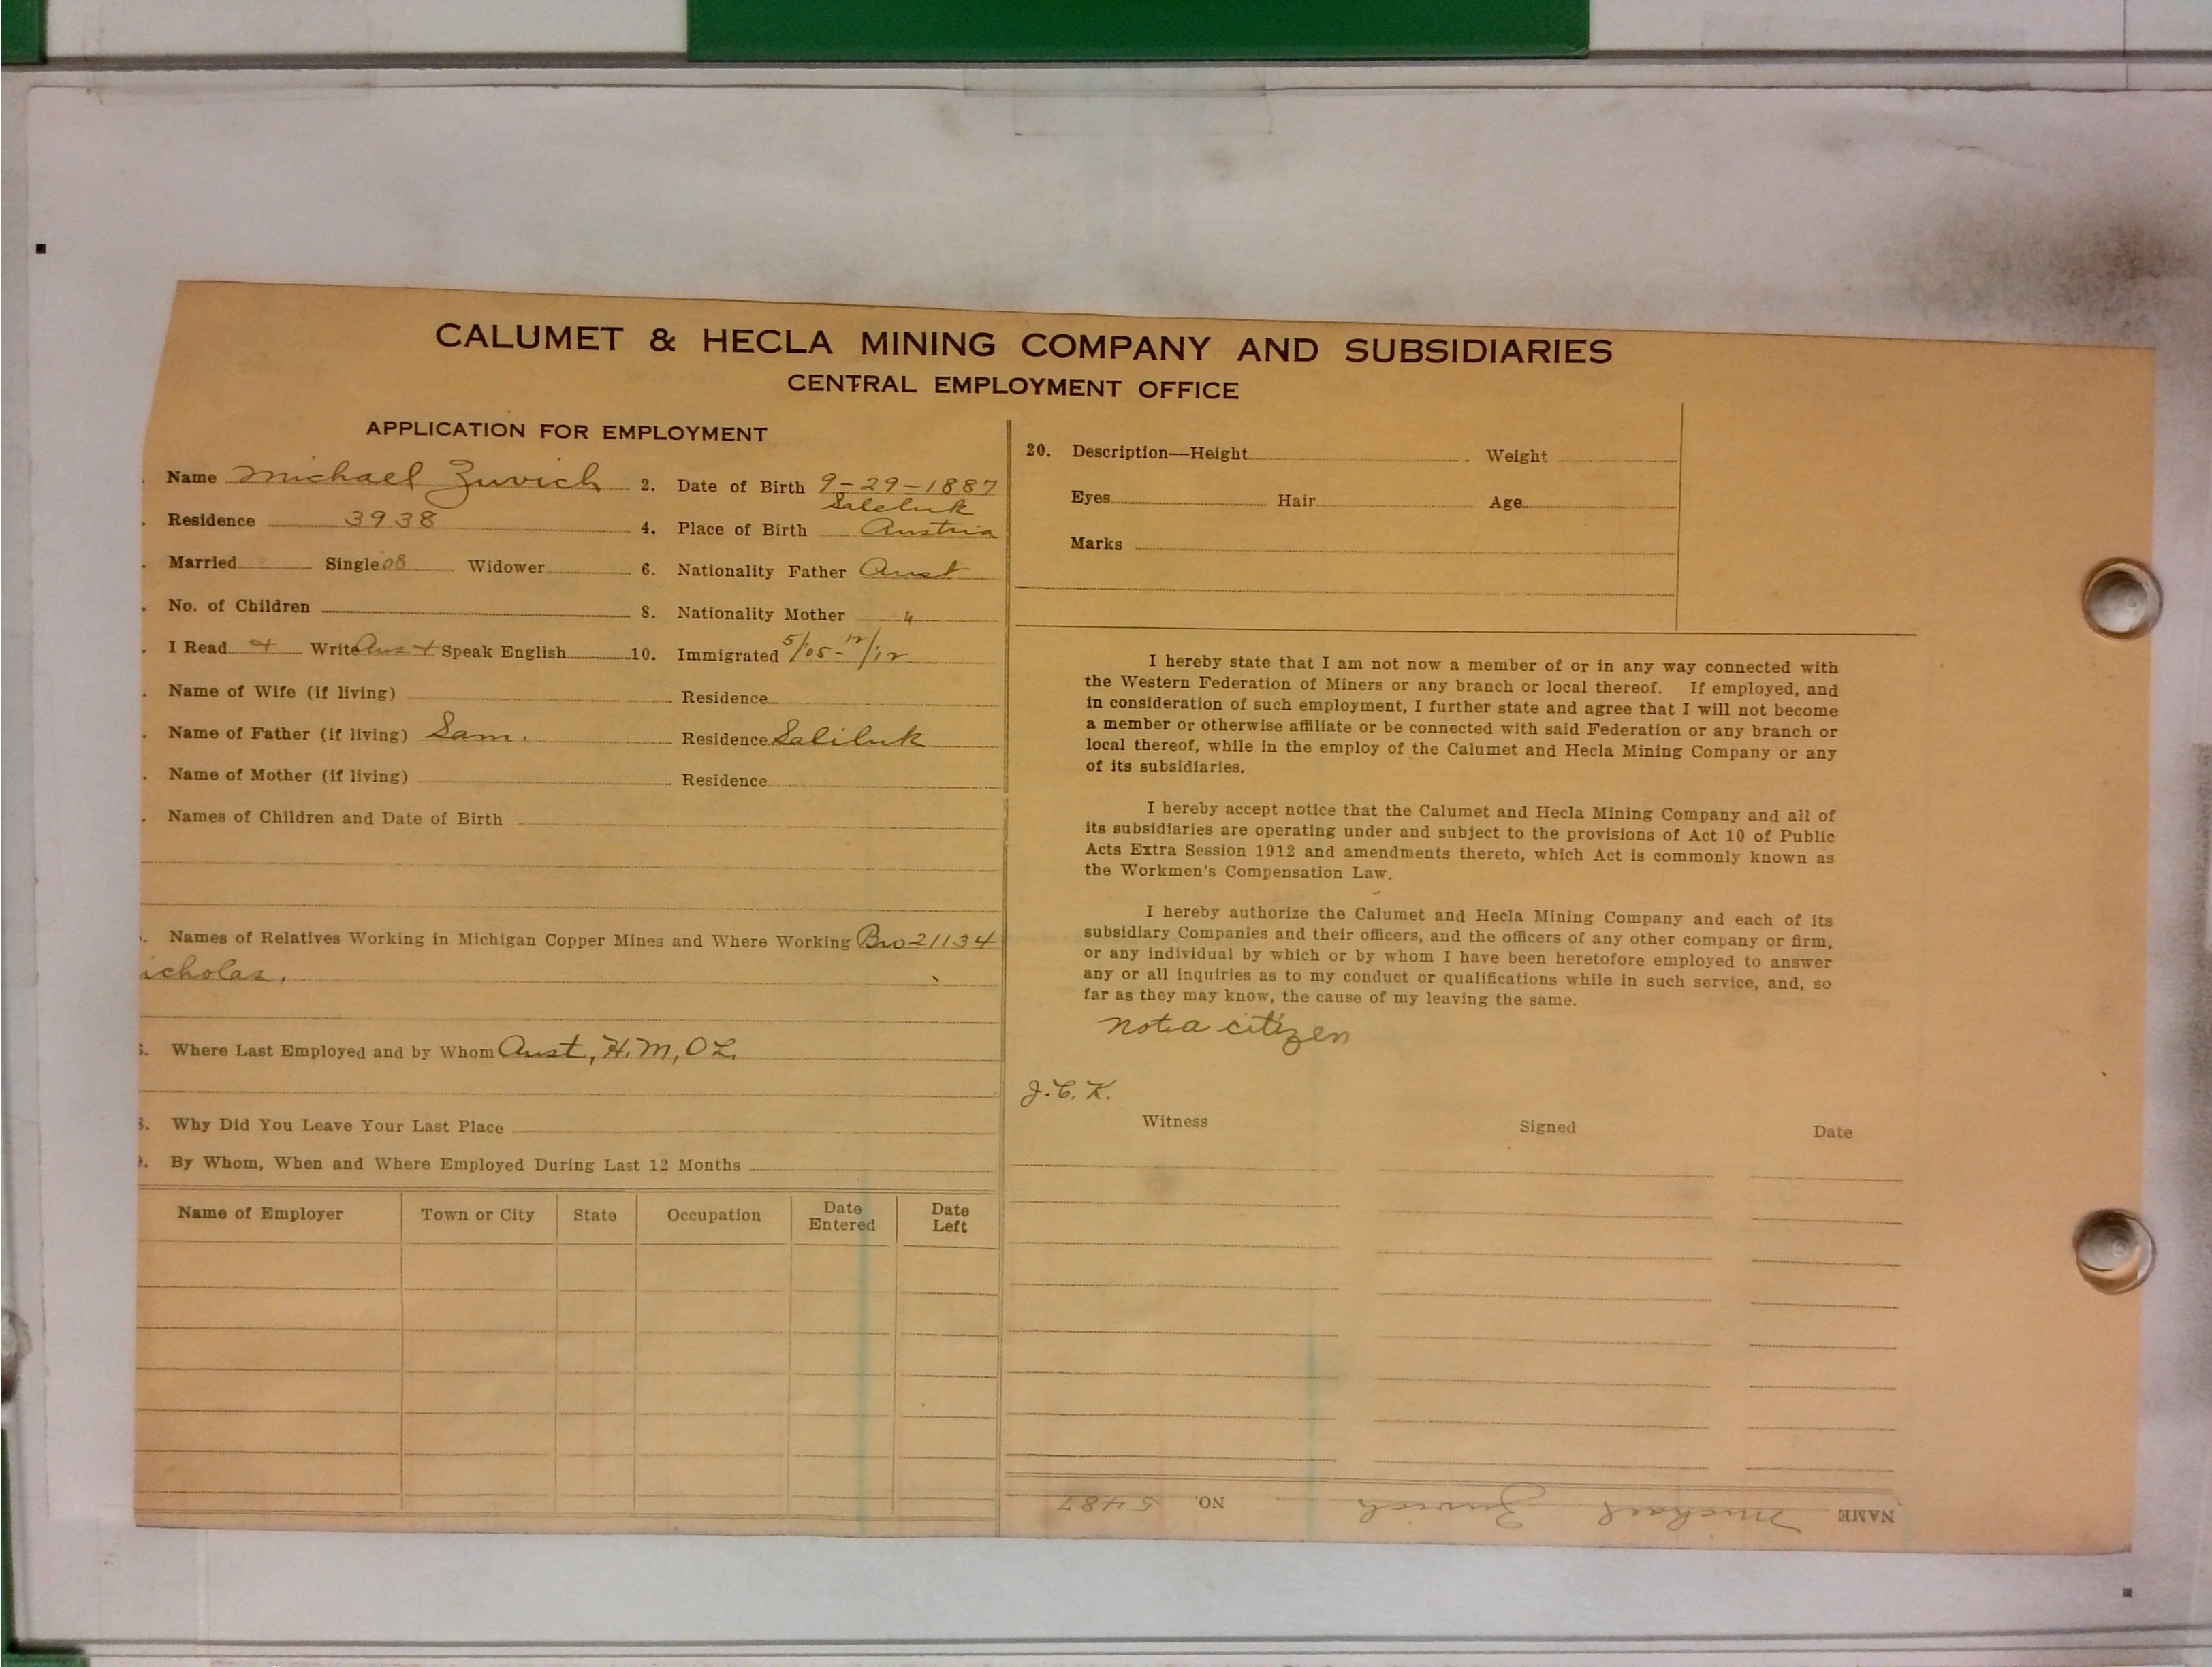 CALUMET & HECLA MINING COMPANY AND SUBSIDIARIES
CENTRAL EMPLOYMENT OFFICE
APPLICATION FOR EMPLOYMENT
Name Michael Zuvich 2. Date of Birth 9-29-1887
Saleluk
Residence 3938 4. Place of Birth Austria
Married Single 08 Widower 6. Nationality Father Aust
No. of Children 8. Nationality Mother
I Read + Write Aus + Speak English 10. Immigrated 5/05 - 12/12
Name of Wife (if living) Residence
Name of Father (if living) Sam. Residence Saliluk
Name of Mother (if living) Residence
Names of Children and Date of Birth
Names of Relatives Working in Michigan Copper Mines and Where Working Bro 21134
icholas.
Where Last Employed and by Whom Aust, H.M, O L.
Why Did You Leave Your Last Place
By Whom, When and Where Employed During Last 12 Months
Name of Employer Town or City State Occupation Date Entered Date Left
20. Description—Height Weight
Eyes Hair Age
Marks
I hereby state that I am not now a member of or in any way connected with
the Western Federation of Miners or any branch or local thereof. If employed, and
in consideration of such employment, I further state and agree that I will not become
a member or otherwise affiliate or be connected with said Federation or any branch or
local thereof, while in the employ of the Calumet and Hecla Mining Company or any
of its subsidiaries.
I hereby accept notice that the Calumet and Hecla Mining Company and all of
its subsidiaries are operating under and subject to the provisions of Act 10 of Public
Acts Extra Session 1912 and amendments thereto, which Act is commonly known as
the Workmen's Compensation Law.
I hereby authorize the Calumet and Hecla Mining Company and each of its
subsidiary Companies and their officers, and the officers of any other company or firm,
or any individual by which or by whom I have been heretofore employed to answer
any or all inquiries as to my conduct or qualifications while in such service, and, so
far as they may know, the cause of my leaving the same.
not a citizen
J.C.K.
Witness Signed Date
NAME Michael Zuvich NO. 5487